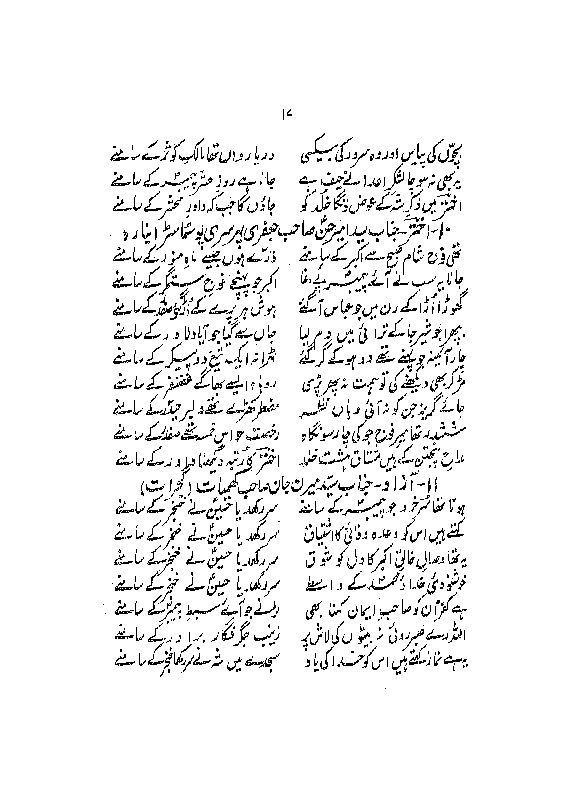 ۱۷
بچوں کی پیاس اور وہ سرور کی بیکسی دریا رواں تھا مالکِ کوثر کے سامنے
یہ بھی نہ سوچا لشکرِ اعدا نے حیف ہے جانا ہے روزِ حشر پیمبر کے سامنے
اختر میں ذکرِ شہ کے عوض لوں گا خلد کو جاؤں گا جب کہ داورِ محشر کے سامنے
۱۰- اختر- جناب سید امیر حسن صاحب جعفری پوسٹماسٹر
تھی فوج شام صبح سے اکبر کے سامنے ذرے ہوں جیسے ماہِ منور کے سامنے
جانا یہ سب نے آئے پیمبر پئے وغا اکبر جو پہنچے فوجِ ستمگر کے سامنے
گھوڑا اڑا کے رن میں جو عباس آ گئے ہوش پرے کے اڑ گئے صفدر کے سامنے
بپھرا جو شیر جا کے ترائی میں دم لیا جاں سے گیا جو آیا دلاور کے سامنے
چار آئینہ جو پہنے تھے دو ہو کے گر گئے ٹھہرا نہ ایک تیغِ دو پیکر کے سامنے
مڑ کر بھی دیکھنے کی تو ہمت نہ پھر پڑی روباہ ایسے بھاگے غضنفر کے سامنے
جائے گریز جن کو نہ آئی وہاں نظر مضطر کھڑے تھے دلبرِ حیدر کے سامنے
ششدر تھا میر فوج جو کی چار سو نگاہ رخصت حواسِ خمسہ تھے صفدر کے سامنے
مداح پنجتن کے ہیں مشتاق ہشت خلد اختر کا رتبہ دیکھنا داور کے سامنے
۱۱- آزاد- جناب سید میرن جان صاحب کھمبات (گجرات)
ہونا تھا سرخرو جو پیمبر کے سامنے سر رکھ دیا حسین نے خنجر کے سامنے
کہتے ہیں اس کو وعدہ وفائی کا اشتیاق سر رکھ دیا حسین نے خنجر کے سامنے
یہ تھا وصالِ خالقِ اکبر کا دل کو شوق سر رکھ دیا حسین نے خنجر کے سامنے
خوشنودیِ خدا و محمد کے واسطے سر رکھ دیا حسین نے خنجر کے سامنے
ہے کفر ان کو صاحبِ ایمان کہنا بھی لڑنے جو آئے سبطِ پیمبر کے سامنے
اللہ رے صبر روئی نہ بیٹوں کی لاش پر زینب جگر فگار برادر کے سامنے
یہ ہے نماز کہتے ہیں اس کو خدا کی یاد سجدے میں شہ نے سر رکھا خنجر کے سامنے